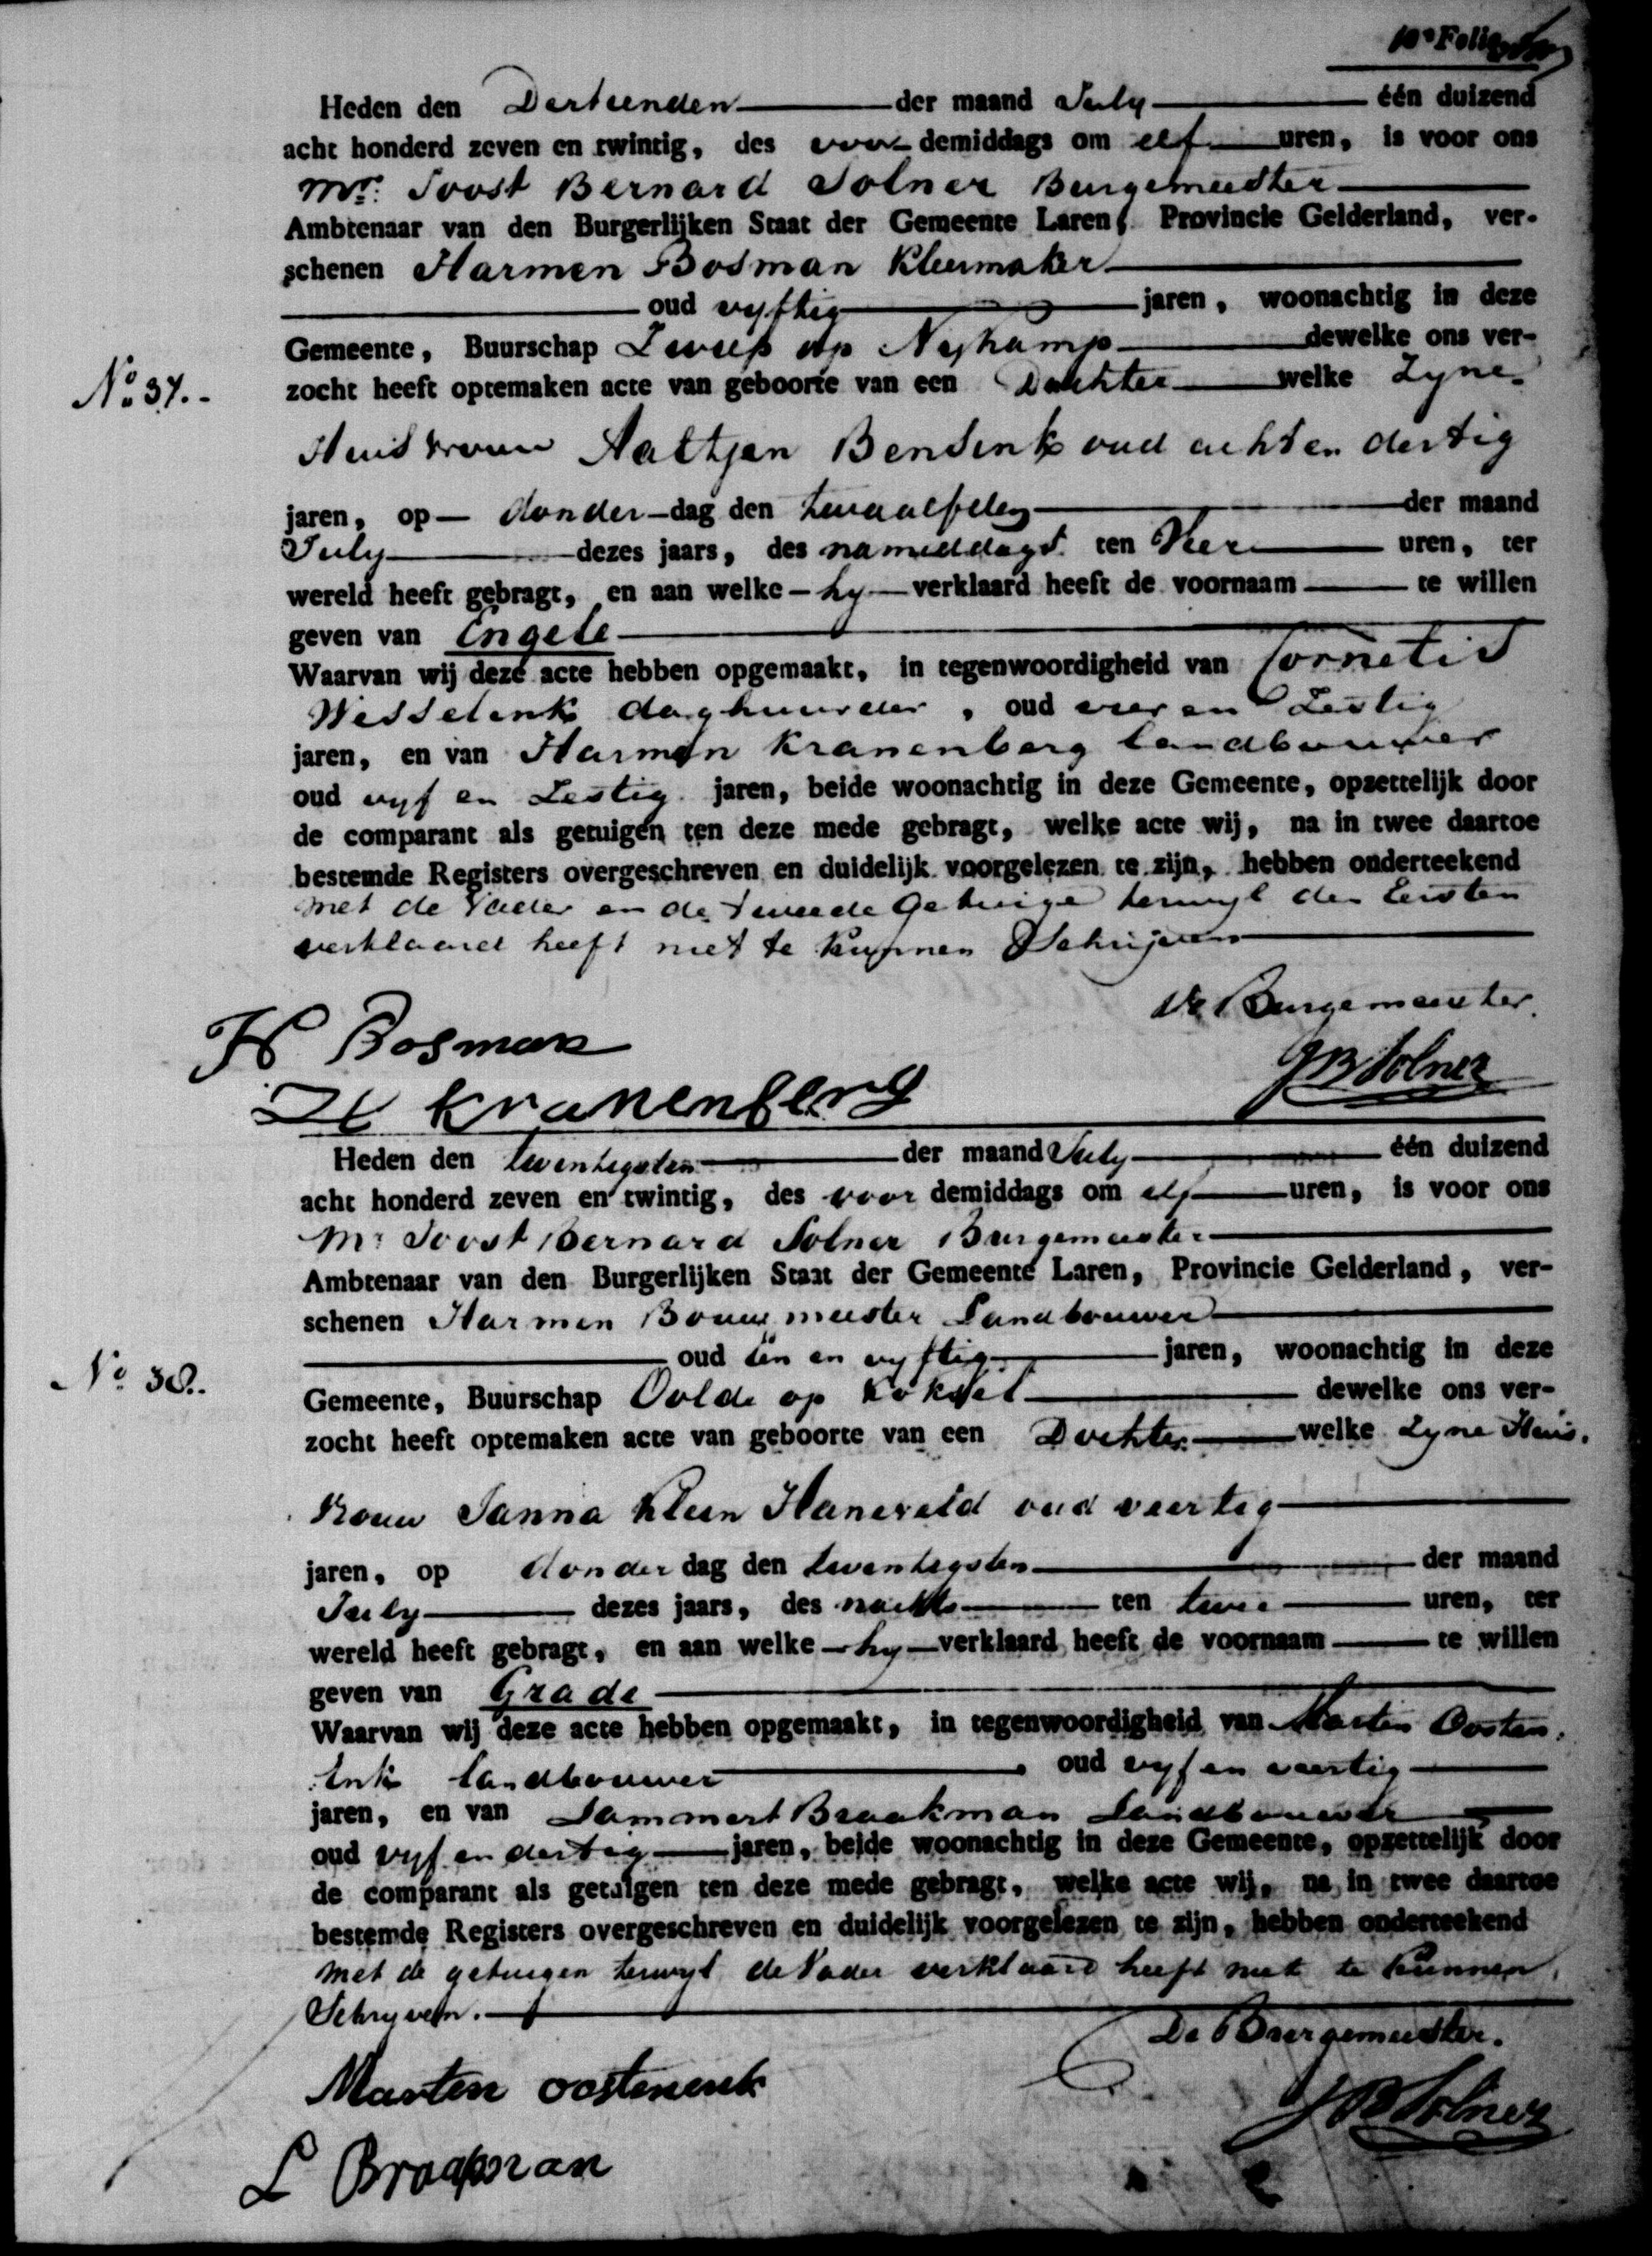 10e Folio
Heden den Dertienden der maand July één duizend
acht honderd zeven en twintig, des voor demiddags om elf uren, is voor ons
Mr. Joost Bernard Solner Burgemeester
Ambtenaar van den Burgerlijken Staat der Gemeente Laren, Provincie Gelderland, ver-
schenen Harmen Bosman Kleermaker
oud vyftig jaren, woonachtig in deze
Gemeente, Buurschap Zwiep op Nyhamp dewelke ons ver-
No 37.-
zocht heeft optemaken acte van geboorte van een Dochter welke Zyne
Huisvrouw Aaltjen Bensink oud acht en dertig
jaren, op donder-dag den twaalfden der maand
July dezes jaars, des namiddags ten Vier uren, ter
wereld heeft gebragt, en aan welke - hy - verklaard heeft de voornaam te willen
geven van Engele
Waarvan wij deze acte hebben opgemaakt, in tegenwoordigheid van Cornelis
Wesselink daghuurder, oud vier en Zestig
jaren, en van Harmen Kranenberg landbouwer
oud vyf en Zestig jaren, beide woonachtig in deze Gemeente, opzettelijk door
de comparant als getuigen ten deze mede gebragt, welke acte wij, na in twee daartoe
bestemde Registers overgeschreven en duidelijk voorgelezen te zijn, hebben onderteekend
met de Vader en de tweede Getuige terwyl den Eersten
verklaard heeft niet te kunnen Schrijven
De Burgemeester.
H Bosman
JB Solner
H Kranenberg
Heden den twentigsten der maand July één duizend
acht honderd zeven en twintig, des voor demiddags om elf uren, is voor ons
Mr Joost Bernard Solner Burgemeester
Ambtenaar van den Burgerlijken Staat der Gemeente Laren, Provincie Gelderland, ver-
schenen Harmen Bouwmeester Landbouwer
oud één en vyftig jaren, woonachtig in deze
No 38.
Gemeente, Buurschap Oolde op dewelke ons ver-
zocht heeft optemaken acte van geboorte van een Dochter welke Zyne Huis.
Vrouw Janna Klein Haneveld oud veertig
jaren, op donder dag den twentigsten der maand
July dezes jaars, des nachts ten twee uren, ter
wereld heeft gebragt, en aan welke - hy - verklaard heeft de voornaam te willen
geven van Grade
Waarvan wij deze acte hebben opgemaakt, in tegenwoordigheid van Marten Oosten.
enk landbouwer, oud vyf en veertig
jaren, en van Lammert Braakman Landbouwer
oud vyf en dertig jaren, beide woonachtig in deze Gemeente, opzettelijk door
de comparant als getuigen ten deze mede gebragt, welke acte wij, na in twee daartoe
bestemde Registers overgeschreven en duidelijk voorgelezen te zijn, hebben onderteekend
met de getuigen terwyl de Vader verklaard heeft niet te kunnen
Schryven.
De Burgemeester.
Marten oostenenk
JB Solner
L Braakman